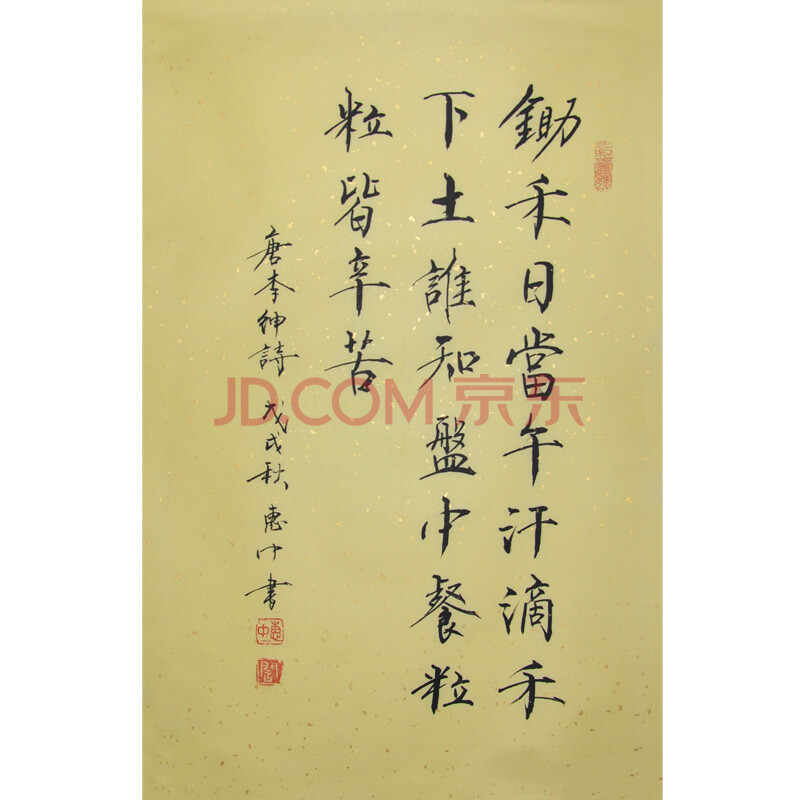 鋤禾日當午汗滴禾
下土誰知盤中餐粒
粒皆辛苦
唐李紳詩 戊戌秋 惠中書
惠中
JD.COM 京东